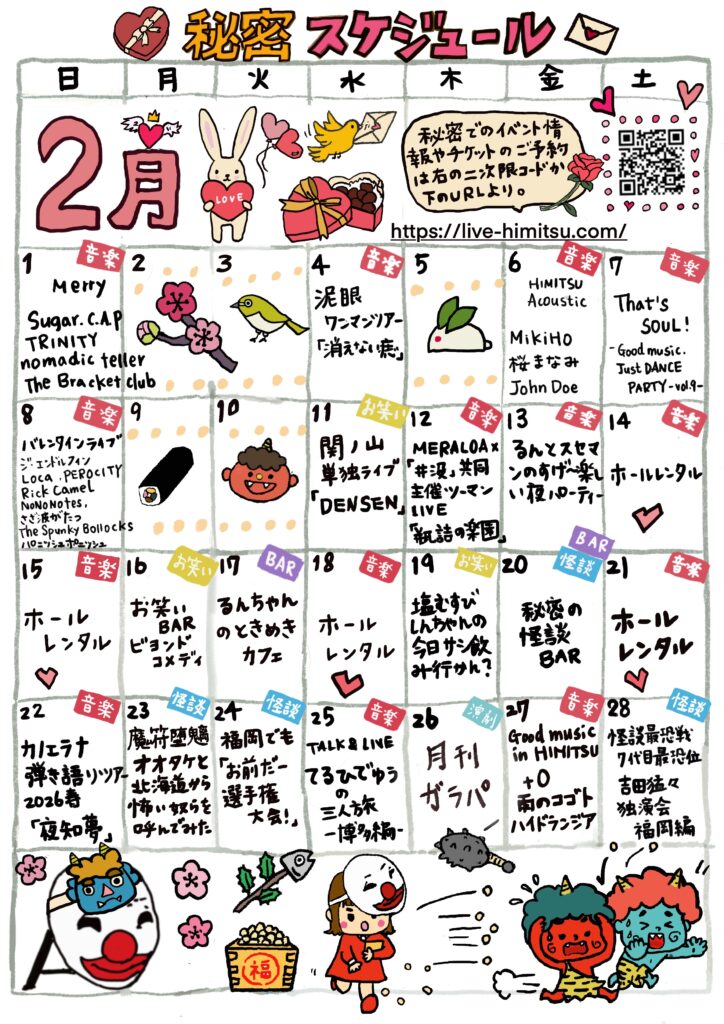 秘密 スケジュール
日 月 火 水 木 金 土
2月
LOVE
秘密でのイベント情
報やチケットのご予約
は右の二次限コードか
下のURLより。
https://live-himitsu.com/
1 音楽
Merry
Sugar.C.A.P
TRINITY
nomadic teller
The Bracket club
2
3
4 音楽
泥眼
ワンマンツアー
「消えない痣」
5
6 音楽
HIMITSU
Acoustic
MikiHO
桜まなみ
John Doe
7 音楽
That's
SOUL!
-Good music.
Just DANCE
PARTY-vol.9-
8 音楽
バレンタインライブ
ジ・エンドルフィン
Loca .PEROCITY
Rick Camel
NoNoNotes.
さざ波がたつ
The Spunky Bollocks
パニッシュポニッシュ
9
10
11 お笑い
関ノ山
単独ライブ
「DENSEN」
12 音楽
MERALOA×
「井没」共同
主催ツーマン
LIVE
「瓶詰の楽園」
13 音楽
るんとスセマ
ンのすげー楽し
い夜パーティー
14 音楽
ホールレンタル
15 音楽
ホール
レンタル
16 お笑い
お笑い
BAR
ビヨンド
コメディ
17 BAR
るんちゃん
のときめき
カフェ
18 音楽
ホール
レンタル
19 お笑い
塩むすび
しんちゃんの
今日サシ飲
み行かん?
20 BAR
怪談
秘密の
怪談
BAR
21 音楽
ホール
レンタル
22 音楽
カノエラナ
弾き語りツアー
2026春
「夜知夢」
23 怪談
魔符堕魑
オオタケと
北海道から
怖い奴らを
呼んでみた
24 怪談
福岡でも
「お前だー
選手権
大会!」
25 音楽
TALK&LINE
てるひでゅう
の
三人旅
-博多編-
26 演劇
月刊
ガラパ
27 音楽
Good music
in HIMITSU
+0
雨のココゴト
ハイドランジア
28 怪談
怪談最恐戦
7代目最恐位
吉田猛々
独演会
福岡編
福